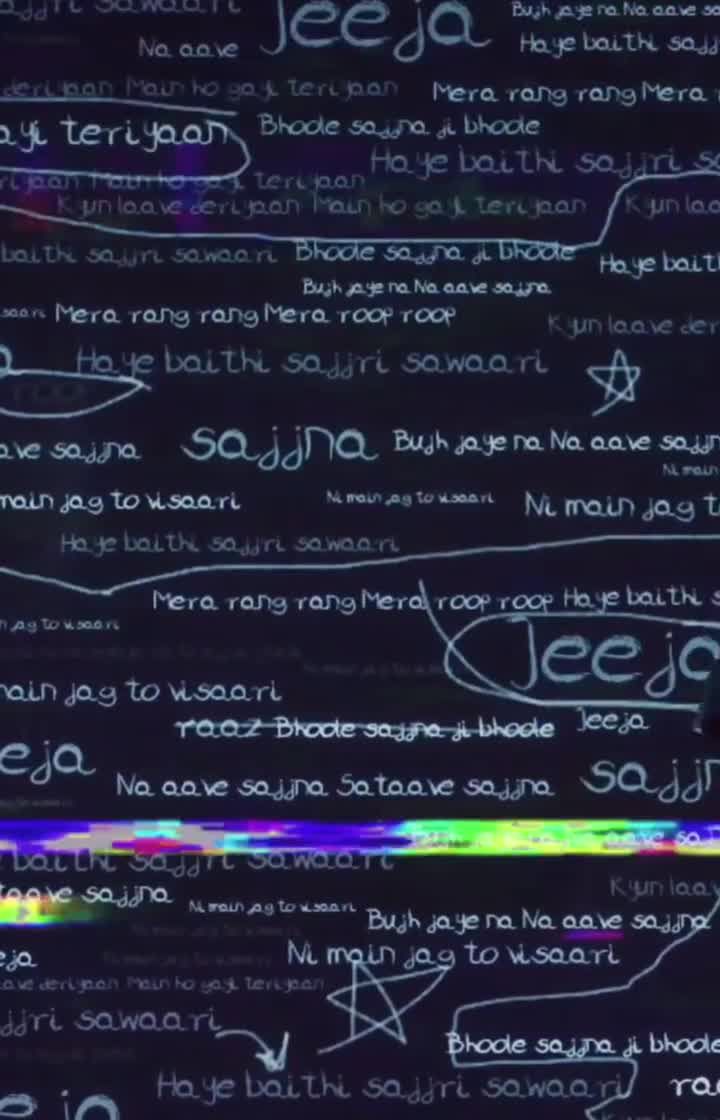 ajjri sawaari
Jeeja
Bujh jaye na Na aave sa
Na aave
Haye baithi sajj
deriyaan Main ho gayi teriyaan
Mera rang rang Mera
ayi teriyaan
Bhode sajjna ji bhode
Haye baithi sajjri sa
riyaan Main ho gayi teriyaan
Kyun laave deriyaan Main ho gayi teriyaan
Kyun laa
baithi sajjri sawaari
Bhode sajjna ji bhode
Haye bait
Bujh jaye na Na aave sajjna
saari
Mera rang rang Mera roop roop
Kyun laave der
Haye baithi sajjri sawaari
roop
ave sajjna
sajjna
Bujh jaye na Na aave sajjn
Ni main
main jag to visaari
Ni main jag to visaari
Ni main jag t
Haye baithi sajjri sawaari
Mera rang rang Mera roop roop
Haye baithi s
n jag to visaari
Jeeja
main jag to visaari
raaz
Bhode sajjna ji bhode
Jeeja
eja
Na aave sajjna Sataave sajjna
sajjn
aave saj
baithi sajjri sawaari
taave sajjna
Kyun laav
Ni main jag to visaari
Bujh jaye na Na aave sajjna
eja
Ni main jag to visaari
ave deriyaan Main ho gayi teriyaan
jjri sawaari
Bhode sajjna ji bhode
Haye baithi sajjri sawaari
raa
eja